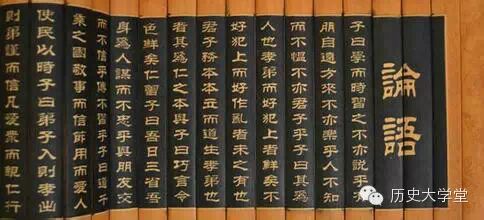 論語
子曰學而時習之不亦說乎有
朋自遠方來不亦樂乎人不知
而不慍不亦君子乎子曰其爲
人也孝弟而好犯上者鮮矣不
好犯上而好作亂者未之有也
君子務本本立而道生孝弟也
者其爲仁之本與子曰巧言令
色鮮矣仁曾子曰吾日三省吾
身爲人謀而不忠乎與朋友交
而不信乎傳不習乎子曰道千
乘之國敬事而信節用而愛人
使民以時子曰弟子入則孝出
則弟謹而信凡愛衆而親仁行
历史大学堂